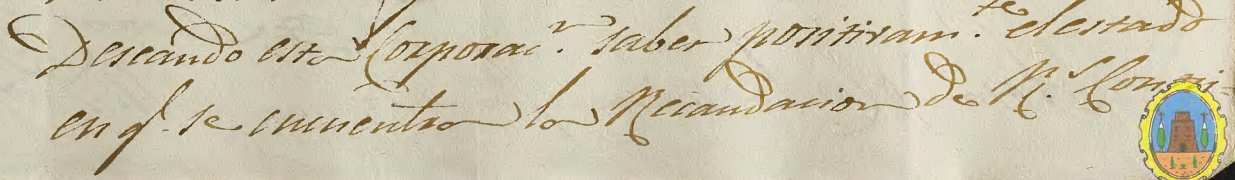 Deseando esta Corporac.n saber positivam.te el estado
en q.e se encuentra la Recaudacion de R.s Contri-